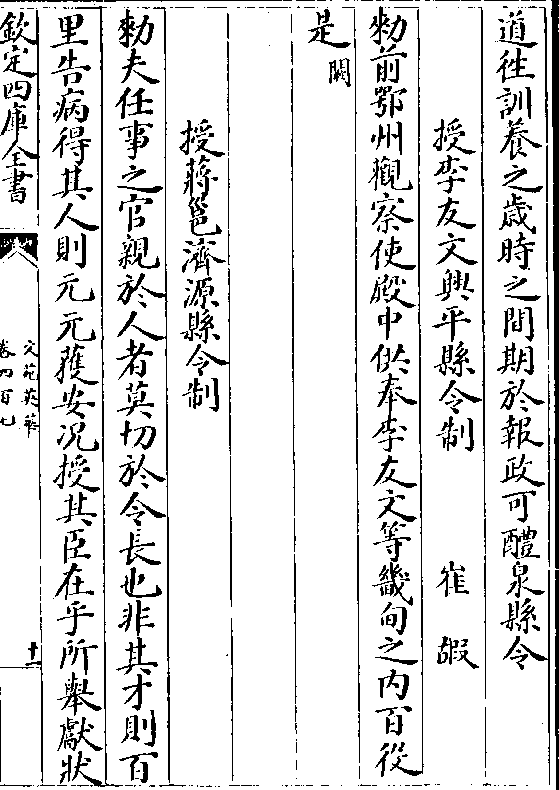 道徃訓養之歳時之間期於報政可醴泉縣令
授李友文興平縣令制 崔嘏
勑前鄂州觀察使殿中供奉李友文等畿甸之内百役
是闕
授蔣邕濟源縣令制
勑夫任事之官親於人者莫切於令長也非其才則百
里告病得其人則元元獲安况授其臣在乎所舉獻狀
欽定四庫全書
文苑英華
卷四百七
十一